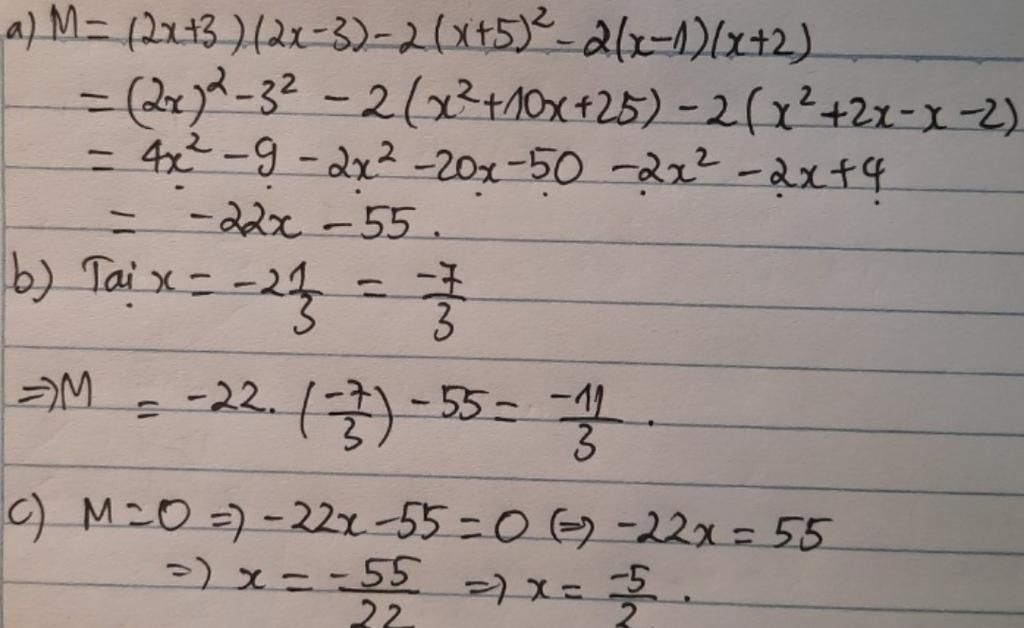 a) M = (2x+3)(2x-3) - 2(x+5)² - 2(x-1)(x+2)
= (2x)² - 3² - 2(x²+10x+25) - 2(x²+2x-x-2)
= 4x² - 9 - 2x² - 20x - 50 - 2x² - 2x + 4
= -22x - 55.
b) Tại x = -2 1/3 = -7/3
=> M = -22. (-7/3) - 55 = -11/3.
c) M = 0 => -22x - 55 = 0 <=> -22x = 55
=> x = -55/22 => x = -5/2.